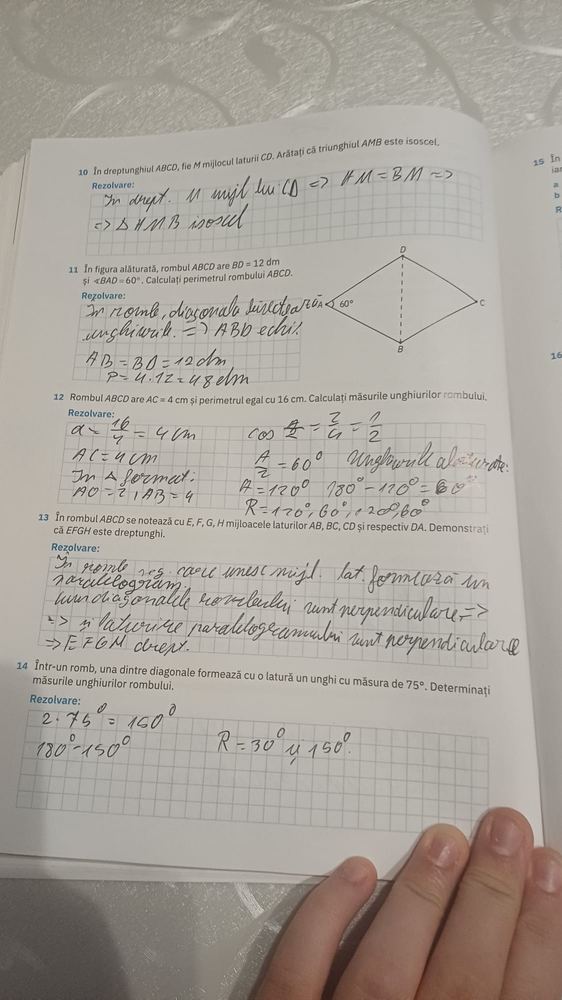 10 În dreptunghiul ABCD, fie M mijlocul laturii CD. Arătați că triunghiul AMB este isoscel.
Rezolvare:
În drept. M mijl lui CD => AM = BM =>
=> Δ AMB isoscel
11 În figura alăturată, rombul ABCD are BD = 12 dm
și ∢BAD = 60°. Calculați perimetrul rombului ABCD.
Rezolvare:
În romb, diagonala bisectoare
unghiurile. => ABD echil.
AB = BD = 12 dm
P = 4 · 12 = 48 dm
D
A
60°
C
B
12 Rombul ABCD are AC = 4 cm și perimetrul egal cu 16 cm. Calculați măsurile unghiurilor rombului.
Rezolvare:
a = 16/4 = 4 cm
AC = 4 cm
În Δ format:
AO = 2, AB = 4
cos A/2 = 2/4 = 1/2
A/2 = 60° Unghiurile alăturate:
A = 120° 180° - 120° = 60°
R = 120°, 60°, 120°, 60°
13 În rombul ABCD se notează cu E, F, G, H mijloacele laturilor AB, BC, CD și respectiv DA. Demonstrați
că EFGH este dreptunghi.
Rezolvare:
În romb seg. care unesc mijl. lat. formează un
paralelogram.
diagonalele rombului sunt perpendiculare =>
=> și laturile paralelogramului sunt perpendiculare
=> EFGH drept.
14 Într-un romb, una dintre diagonale formează cu o latură un unghi cu măsura de 75°. Determinați
măsurile unghiurilor rombului.
Rezolvare:
2 · 75° = 150°
180° - 150°
R = 30° și 150°.
15 În
iar
a
b
R
16